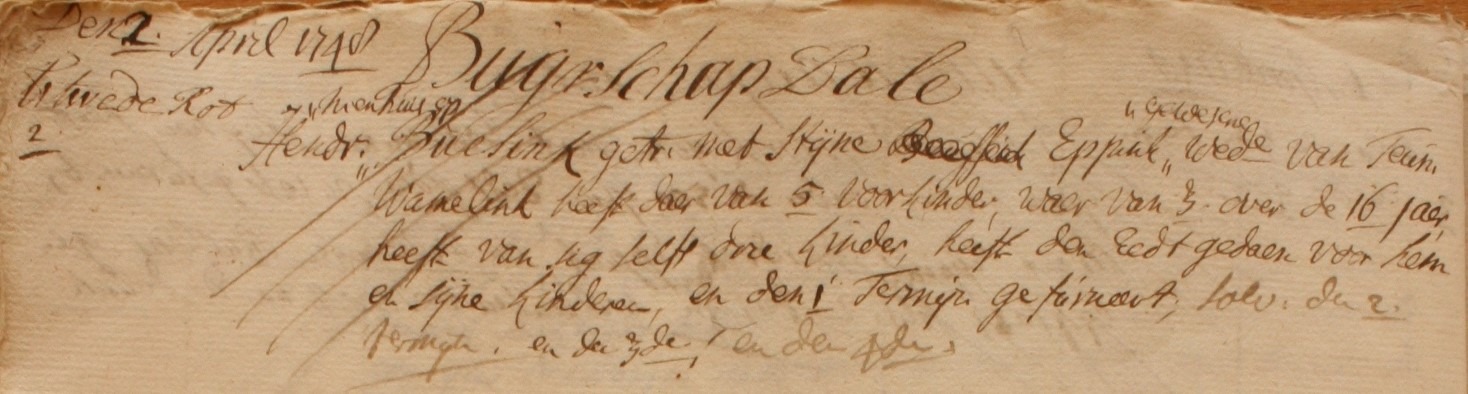 Den 2. April 1748
Buirschap Dale
Twede Rot
2
Hendr. Buesink getr. met Stijne Eppink gewesene Wede van Teun
Wamelink heeft daer van 5 voorkinder, waer van 3. over de 16 jaer,
heeft van sig selfs drie kinder, heeft den Eedt gedaen voor hem
en sijne kinderen, en den 1 Termijn gefurneert, solv. de 2.
termijn. en de 3de, en den 4den